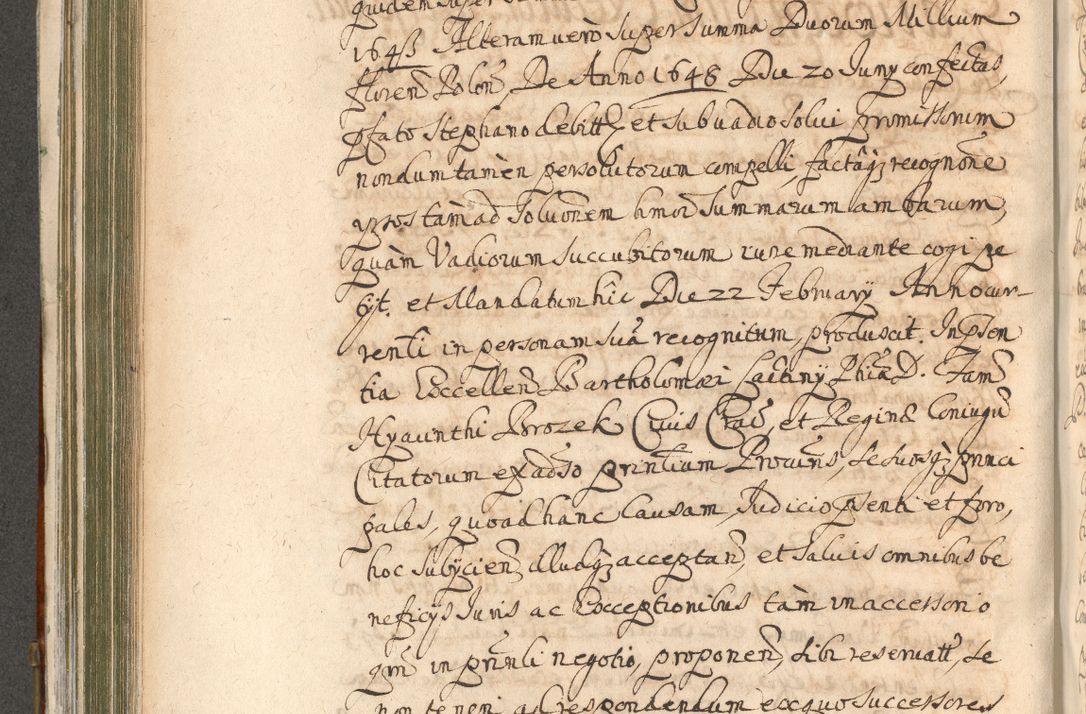 quidem super summa
1645 Alteram vero super summa Duorum Millium
floren Polon, De Anno 1648 Die 20 Juny confectas,
pfato Stephano debitt, et sub vadio solui promissorum
nondum tamen persolutorum compelli, factaq recognone
ipsos tam ad solvonem hmoi summarum ambarum,
quam Vadiorum succubitorum iure mediante cogi pe
tyt. et Mandatum hic Die 22 February Anno cur-
renti in personam sua recognitum, produxit. In psen
tia Excellen Bartholomæi Phiæ D. Fam
Hyacinthi Brozek Civis Crac, et Reginæ Coniugu
Citatorum ex adso prntium Procuris, se suosq princi
pales, quoad hanc Causam, Judicio psenti et foro,
hoc subycien, illudq acceptan, et saluis omnibus be
neficys Juris ac Exceptionibus tam in accessorio
qm in prinli negotio, proponen, sibi reseruatt, se
non teneri ad respondendum ex quo successores